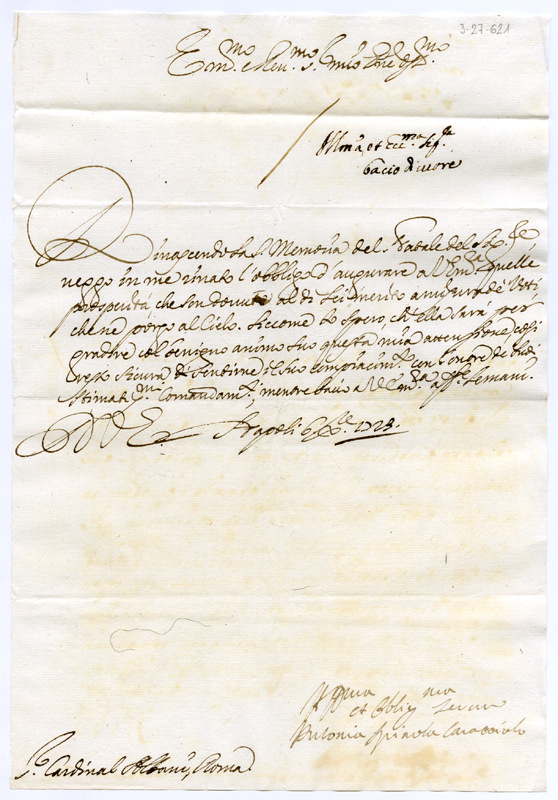 3-27-621
Em.mo e Rev.mo S.r mio P̃ne Oss.mo
Ill.ma et Ecc.ma Sig.ra
bacio di cuore
Rinascendo la S. Memoria del Natale del Sig.re
veggo in me rinato l'obbligo d'augurare a V. Em.a quelle
prosperità, che son dovute al di Lei merito a misura de Voti
che ne porgo al Cielo. Siccome lo spero, ch'Ella sarà per
gradire col benigno animo suo questa mia attenzione, così
resto sicura di sentirne il suo compiacim.to con l'onore de suoi
stimat.mi Comandam.ti mentre bacio a V. Em.a aff.te le mani
D V E Napoli 6 Xbre 1723.
et Oblig.ma Serva
Antonia Spinola Caracciolo
S.r Cardinal Albani, Roma